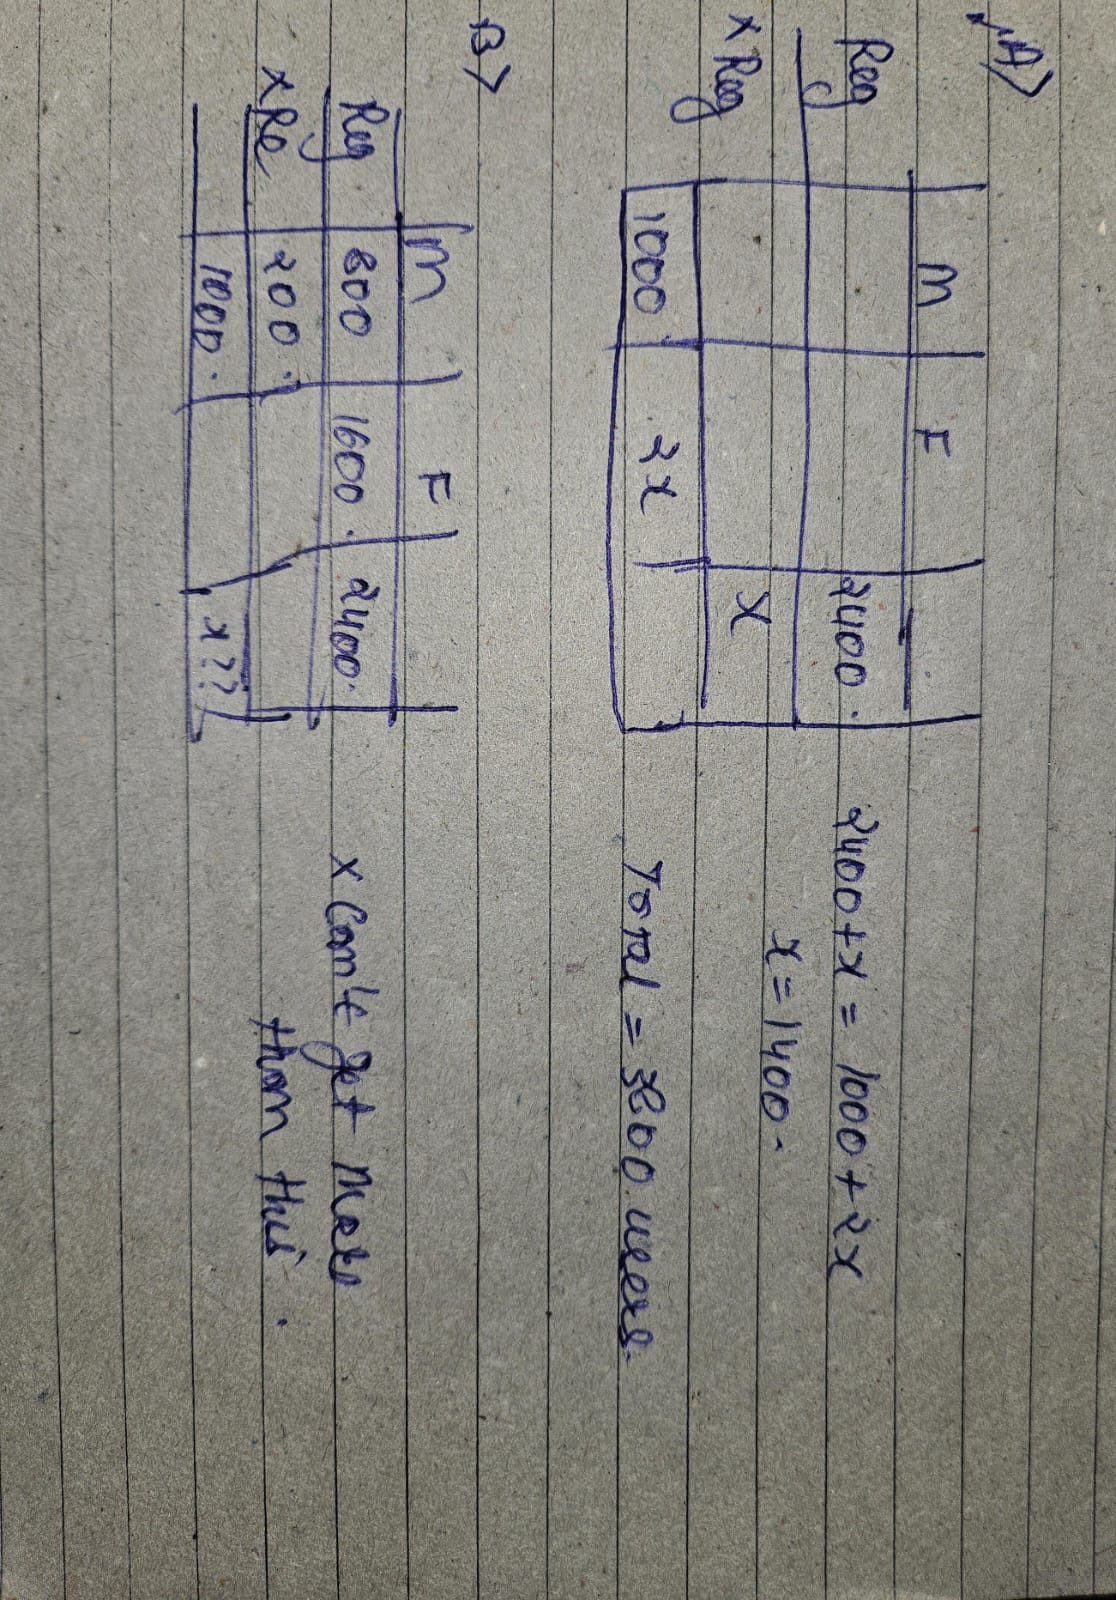 A>
M F
Reg 2400. 2400+x = 1000+2x
x Reg X x=1400.
1000 2x Total = 3800 users.
B>
M F
Reg 800 1600. 2400. x Can't get more
xRe 200. than this.
1000. x??